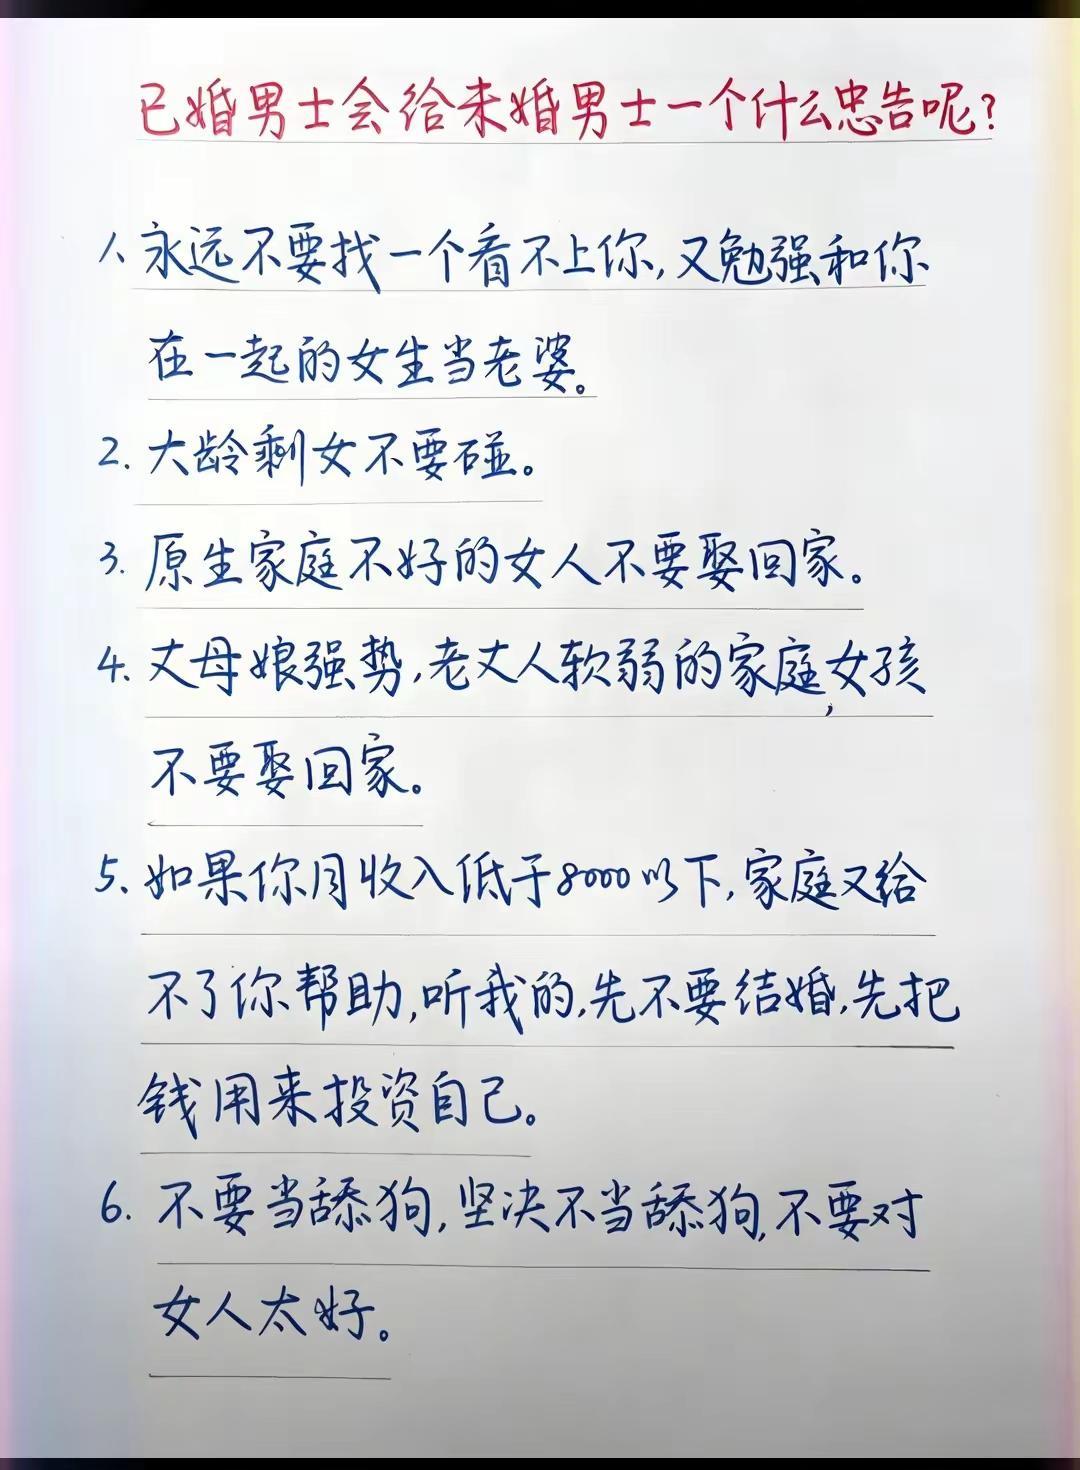 已婚男士会给未婚男士一个什么忠告呢?
1、永远不要找一个看不上你,又勉强和你
在一起的女生当老婆。
2.大龄剩女不要碰。
3.原生家庭不好的女人不要娶回家。
4.丈母娘强势,老丈人软弱的家庭,女孩
不要娶回家。
5、如果你月收入低于8000以下,家庭又给
不了你帮助,听我的,先不要结婚,先把
钱用来投资自己。
6.不要当舔狗,坚决不当舔狗,不要对
女人太好。